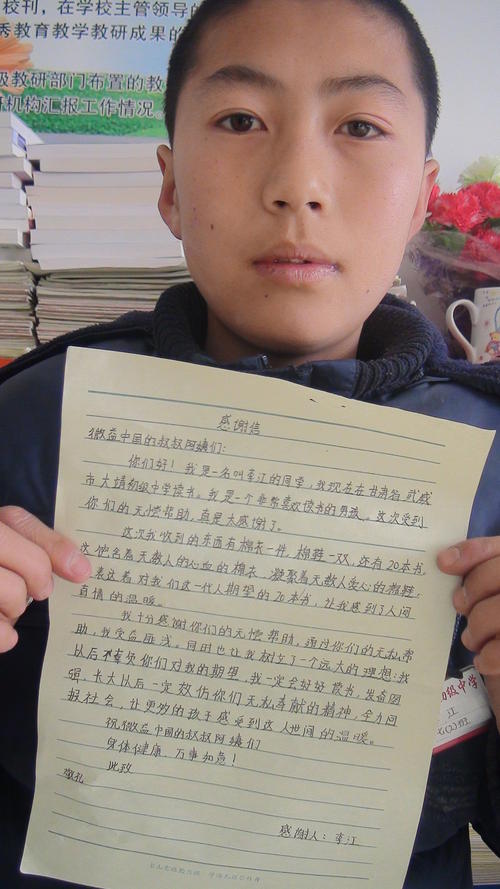 校刊，在学校主管领导的
秀教育教学教研成果的
级教研部门布置的教
机构汇报工作情况。
感谢信
微益中国的叔叔阿姨们：
你们好！我是一名叫李江的同学，我现在在甘肃省武威
市大靖初级中学读书。我是一个非常喜欢读书的男孩。这次受到
你们的无偿帮助，真是太感谢了。
这次我收到的东西有棉衣一件，棉鞋一双，还有20本书，
这饱含着无数人的心血的棉衣，凝聚着无数人爱心的棉鞋，
表达着对我们这一代人期望的20本书，让我感到了人间
真情的温暖。
我十分感谢你们的无偿帮助，通过你们的无私帮
助，我受益匪浅。同时也让我树立了一个远大的理想：我
以后不辜负你们对我的期望，我一定会好好读书，发奋图
强，长大以后一定效仿你们无私奉献的精神，全力回
报社会，让更多的孩子感受到这人世间的温暖。
祝微益中国的叔叔阿姨们
身体健康，万事如意！
此致
敬礼
感谢人：李江
初级中学
江
(2)班